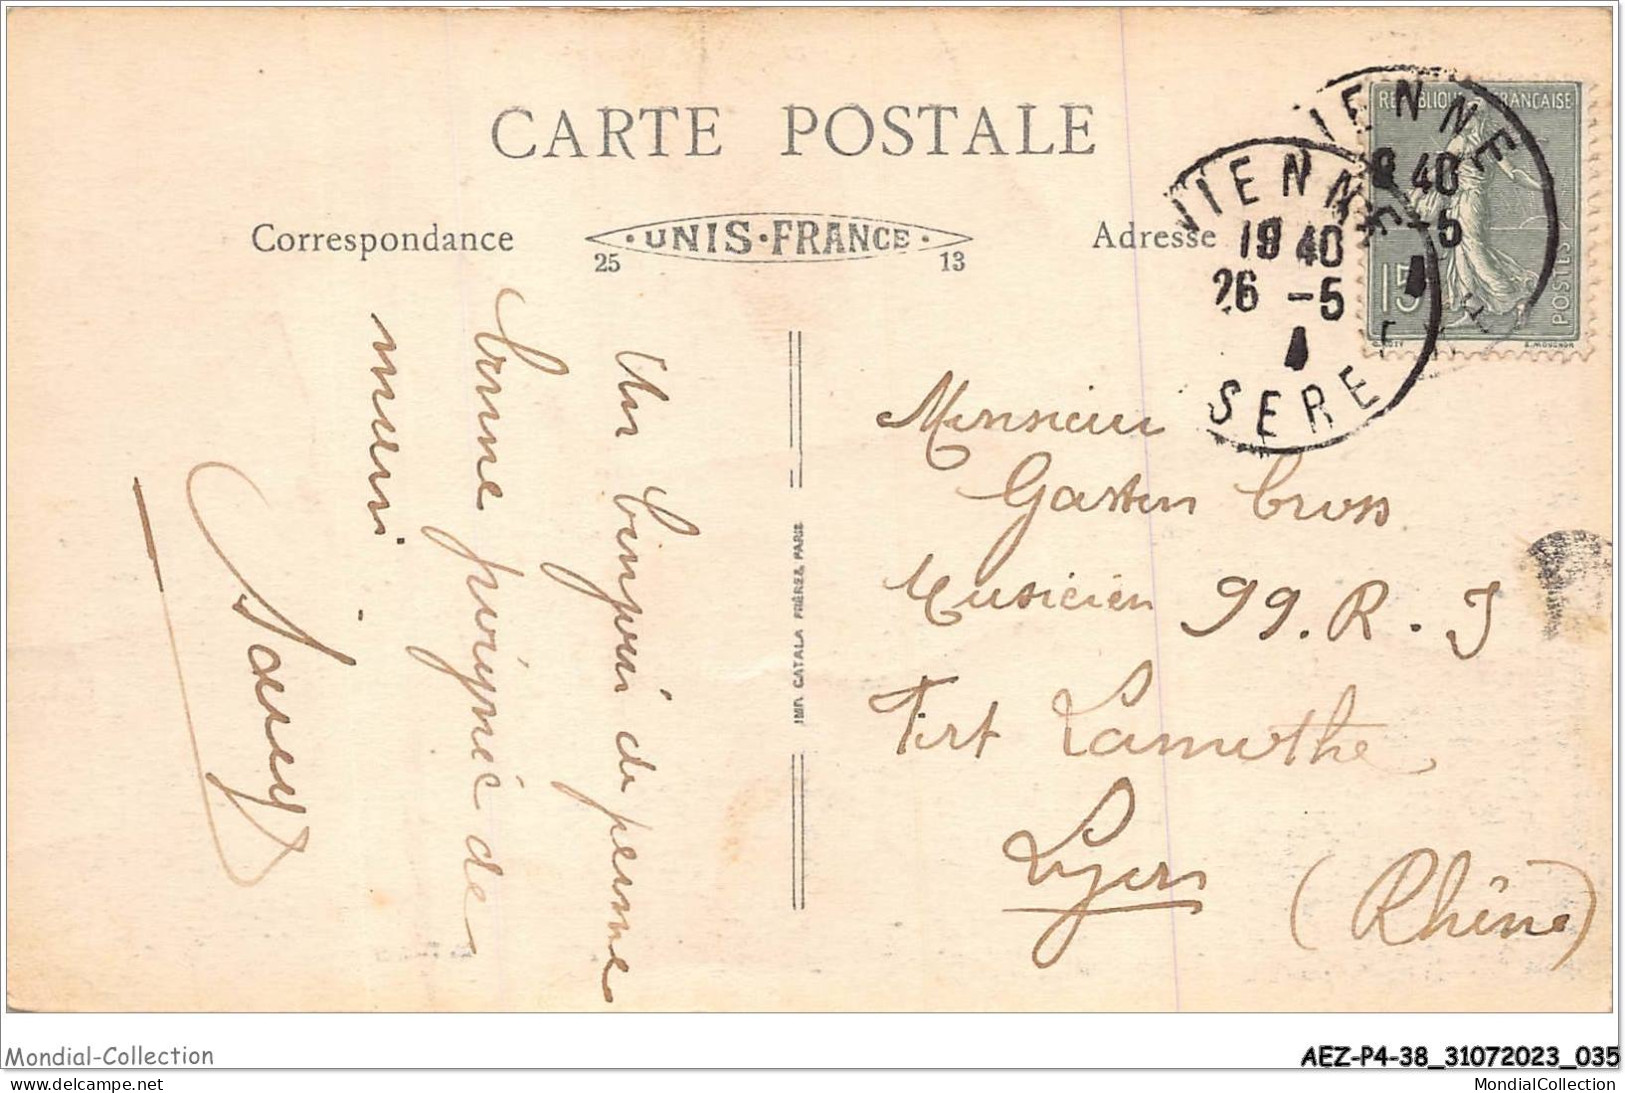 CARTE POSTALE
Correspondance
·UNIS·FRANCE·
25
13
Adresse
VIENNE
19 40
26 -5
ISERE
VIENNE
40
-5
REPUBLIQUE FRANCAISE
15
POSTES
Un bonjour du jeune
bonne poignée de
main
IMP. CATALA FRÈRES, PARIS
Monsieur
Gaston Cross
Musicien 99. R. I
Fort Lamothe
Lyon
(Rhône)
Mondial-Collection
AEZ-P4-38_31072023_035
delcampe.net
MondialCollection